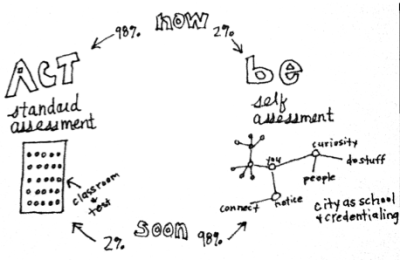 now
98%
2%
ACT
be
standard
assessment
self
assessment
you
curiosity
do stuff
people
connect
notice
classroom
+
test
city as school
+ credentialing
soon
2%
98%